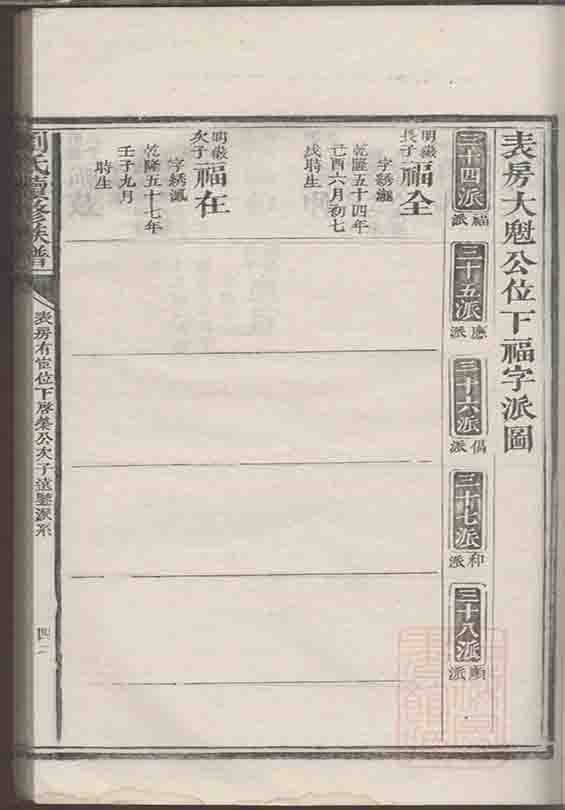 表房大魁公位下福字派圖
三十四派
福派
三十五派
應派
三十六派
偈派
三十七派
和派
三十八派
派
明嶽長子福全
字綉
乾隆五十四年
己酉六月初七
戌時生
明嶽次子福在
字綉
乾隆五十七年
壬子九月
時生
劉氏續修族譜
表房有宦位下啓秦公次子遠鑒派系